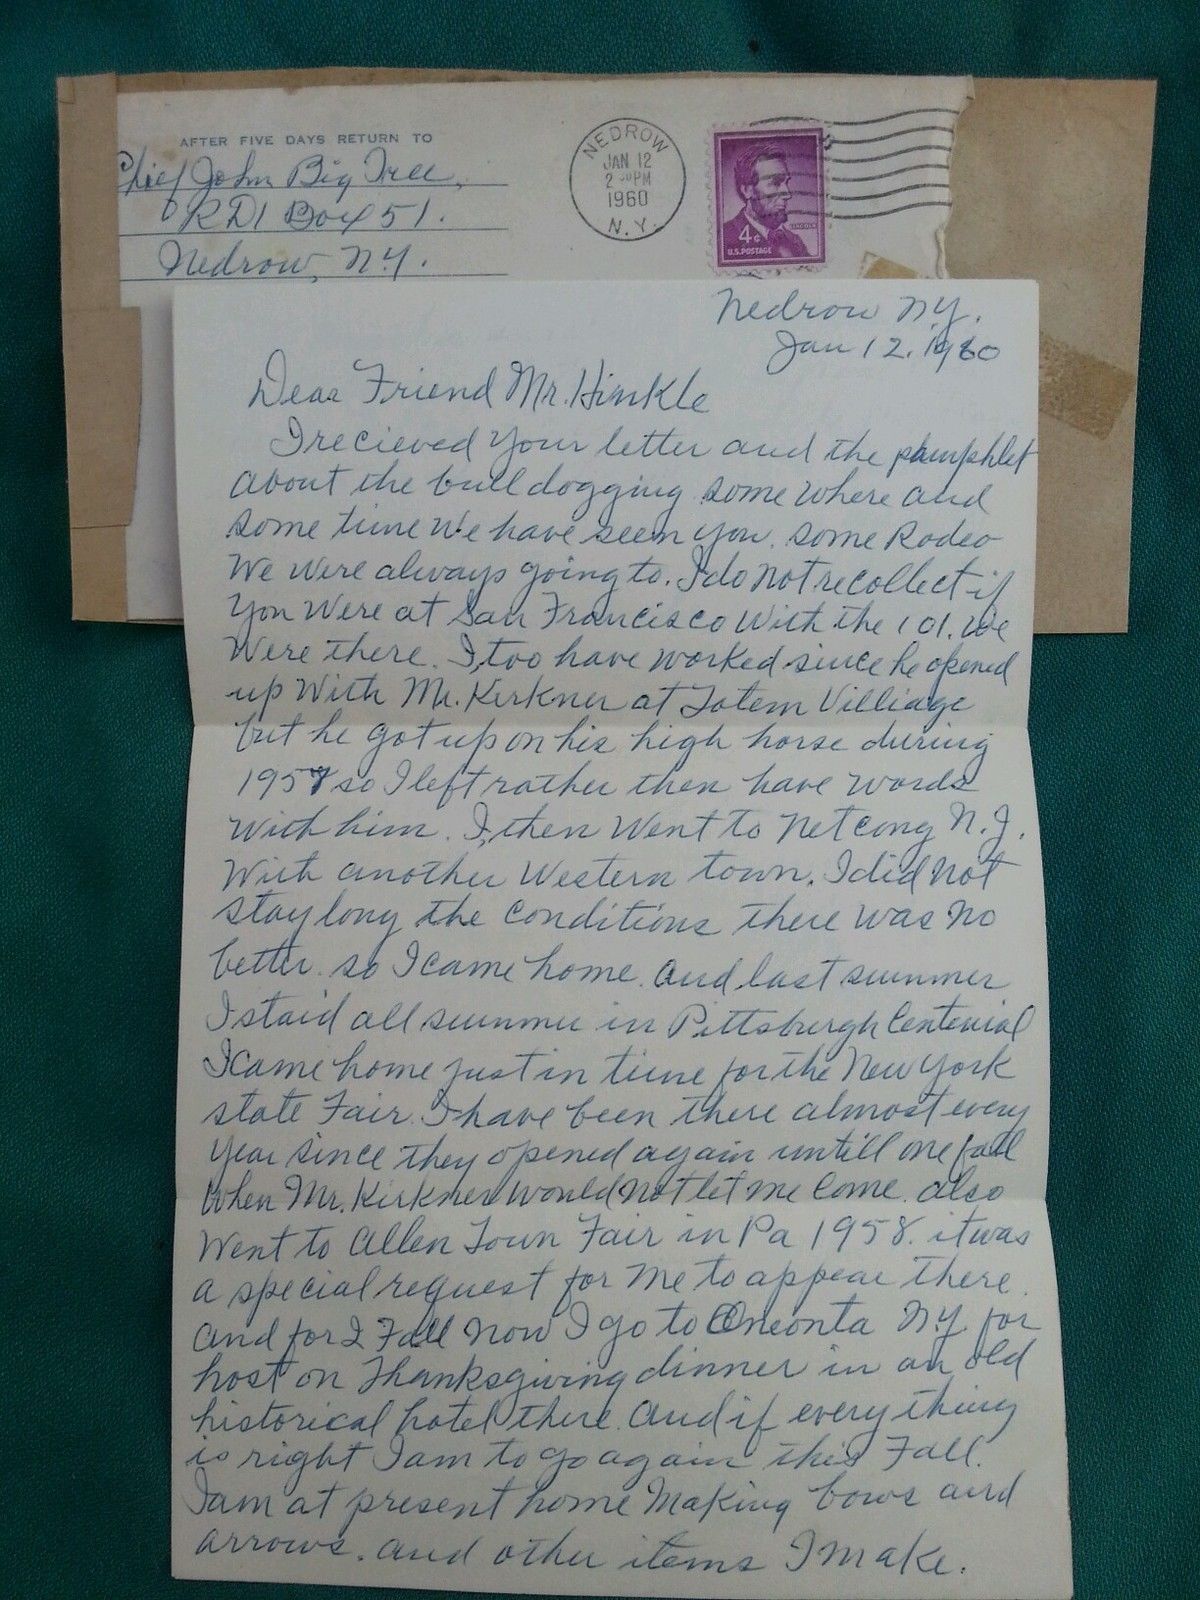 AFTER FIVE DAYS RETURN TO
Chief John Big Tree,
RD1 Box 51.
Nedrow, N.Y.
NEDROW
JAN 12
2 PM
1960
N.Y.
4¢
LINCOLN
U.S. POSTAGE
Nedrow N.Y.
Jan 12. 1960
Dear Friend Mr. Hinkle
I recieved your letter and the pamphlet
about the bull dogging some where and
some time We have seen you. some Rodeo
We Were always going to. I do Not recollect if
you Were at San Francisco With the 101. We
Were there. I, too have worked since he opened
up With Mr. Kirkner at Totem Villiage
but he got up on his high horse during
1957 so I left rather then have words
With him. I, then Went to Netcong N.J.
With another Western town. I did Not
stay long the conditions there was No
better. so I came home. and last summer
I staid all summer in Pittsburgh Centenial
I came home just in time for the New York
state Fair. I have been there almost every
year since they opened again untill one fall
When Mr. Kirkner Would Not let me Come. also
Went to Allen Town Fair in Pa 1958. it was
a special request for Me to appear there.
and for 2 Fall Now I go to Oneonta N.Y. for
host on Thanksgiving dinner in an old
historical hotel there. And if every thing
is right I am to go again this Fall.
I am at present home Making bows and
arrows. and other items I make.